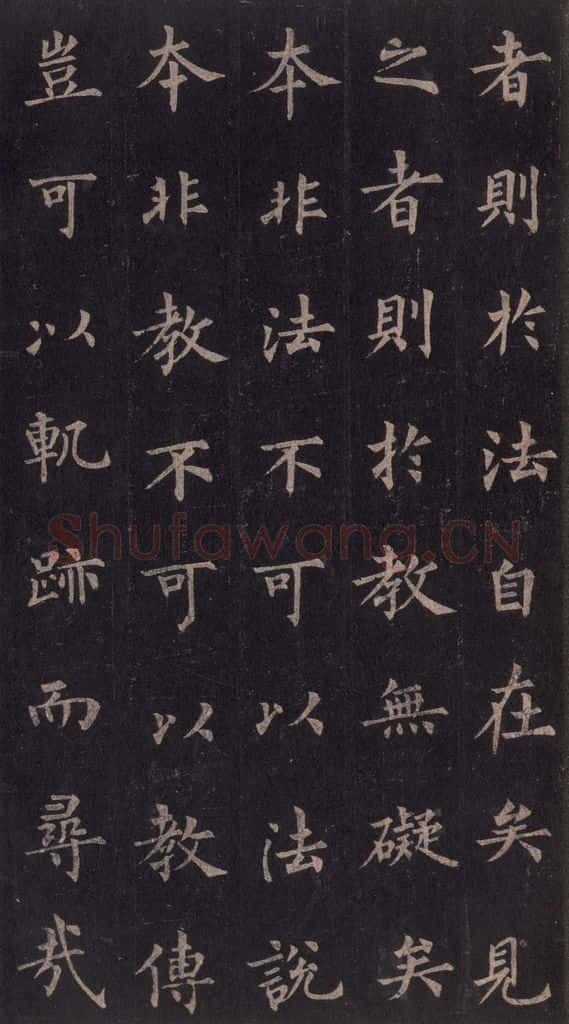 者則於法自在矣見
之者則於教無礙矣
本非法不可以法說
本非教不可以教傳
豈可以軌跡而尋哉
Shufawang.CN